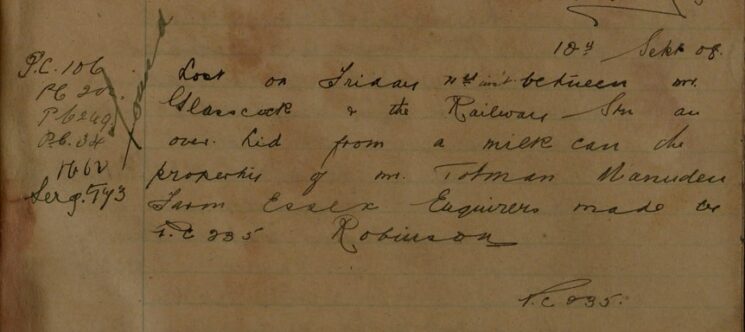 Sept 08.
P.C. 106
PC
PC 249
P.C. 34
Serg.
Found
Lost on Friday 11th inst between mr.
Glasscock & the Railway Stn an
over lid from a milk can the
properties of mr. Totman Manuden
Farm Essex Enquirers made be
P.C 235 Robinson
P.C 235.